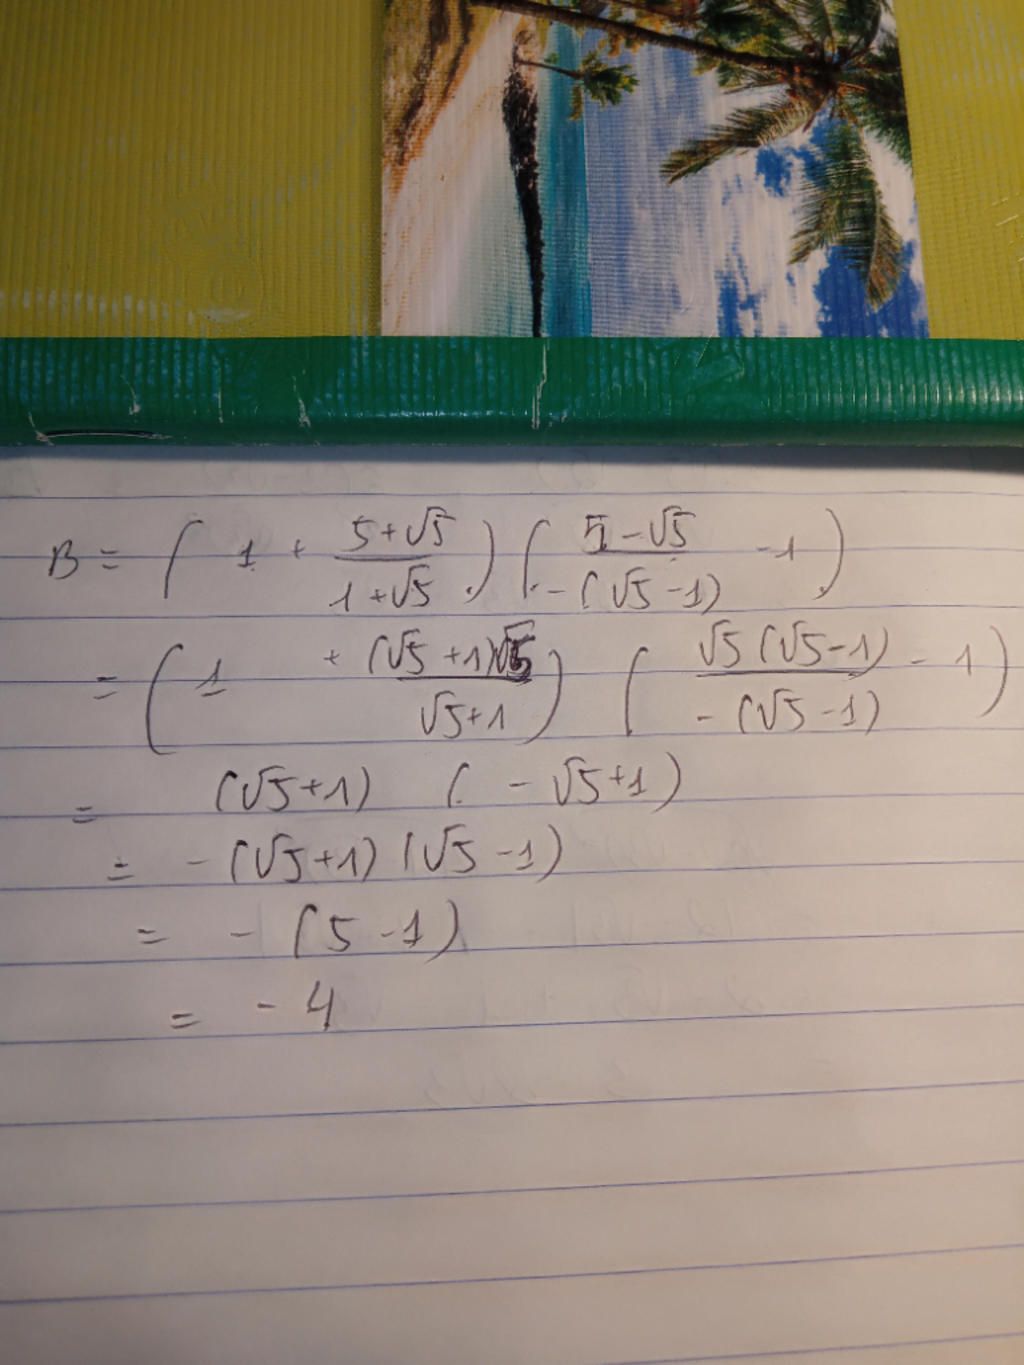 B = ( 1 + \frac{5+√5}{1+√5} ) ( \frac{5-√5}{-(√5-1)} -1 )
= ( 1 + \frac{(√5+1)√5}{√5+1} ) ( \frac{√5(√5-1)}{-(√5-1)} - 1 )
= (√5+1) ( -√5+1 )
= -(√5+1)(√5-1)
= -(5-1)
= -4